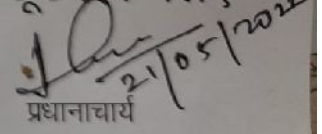 21/05/202
प्रधानाचार्य